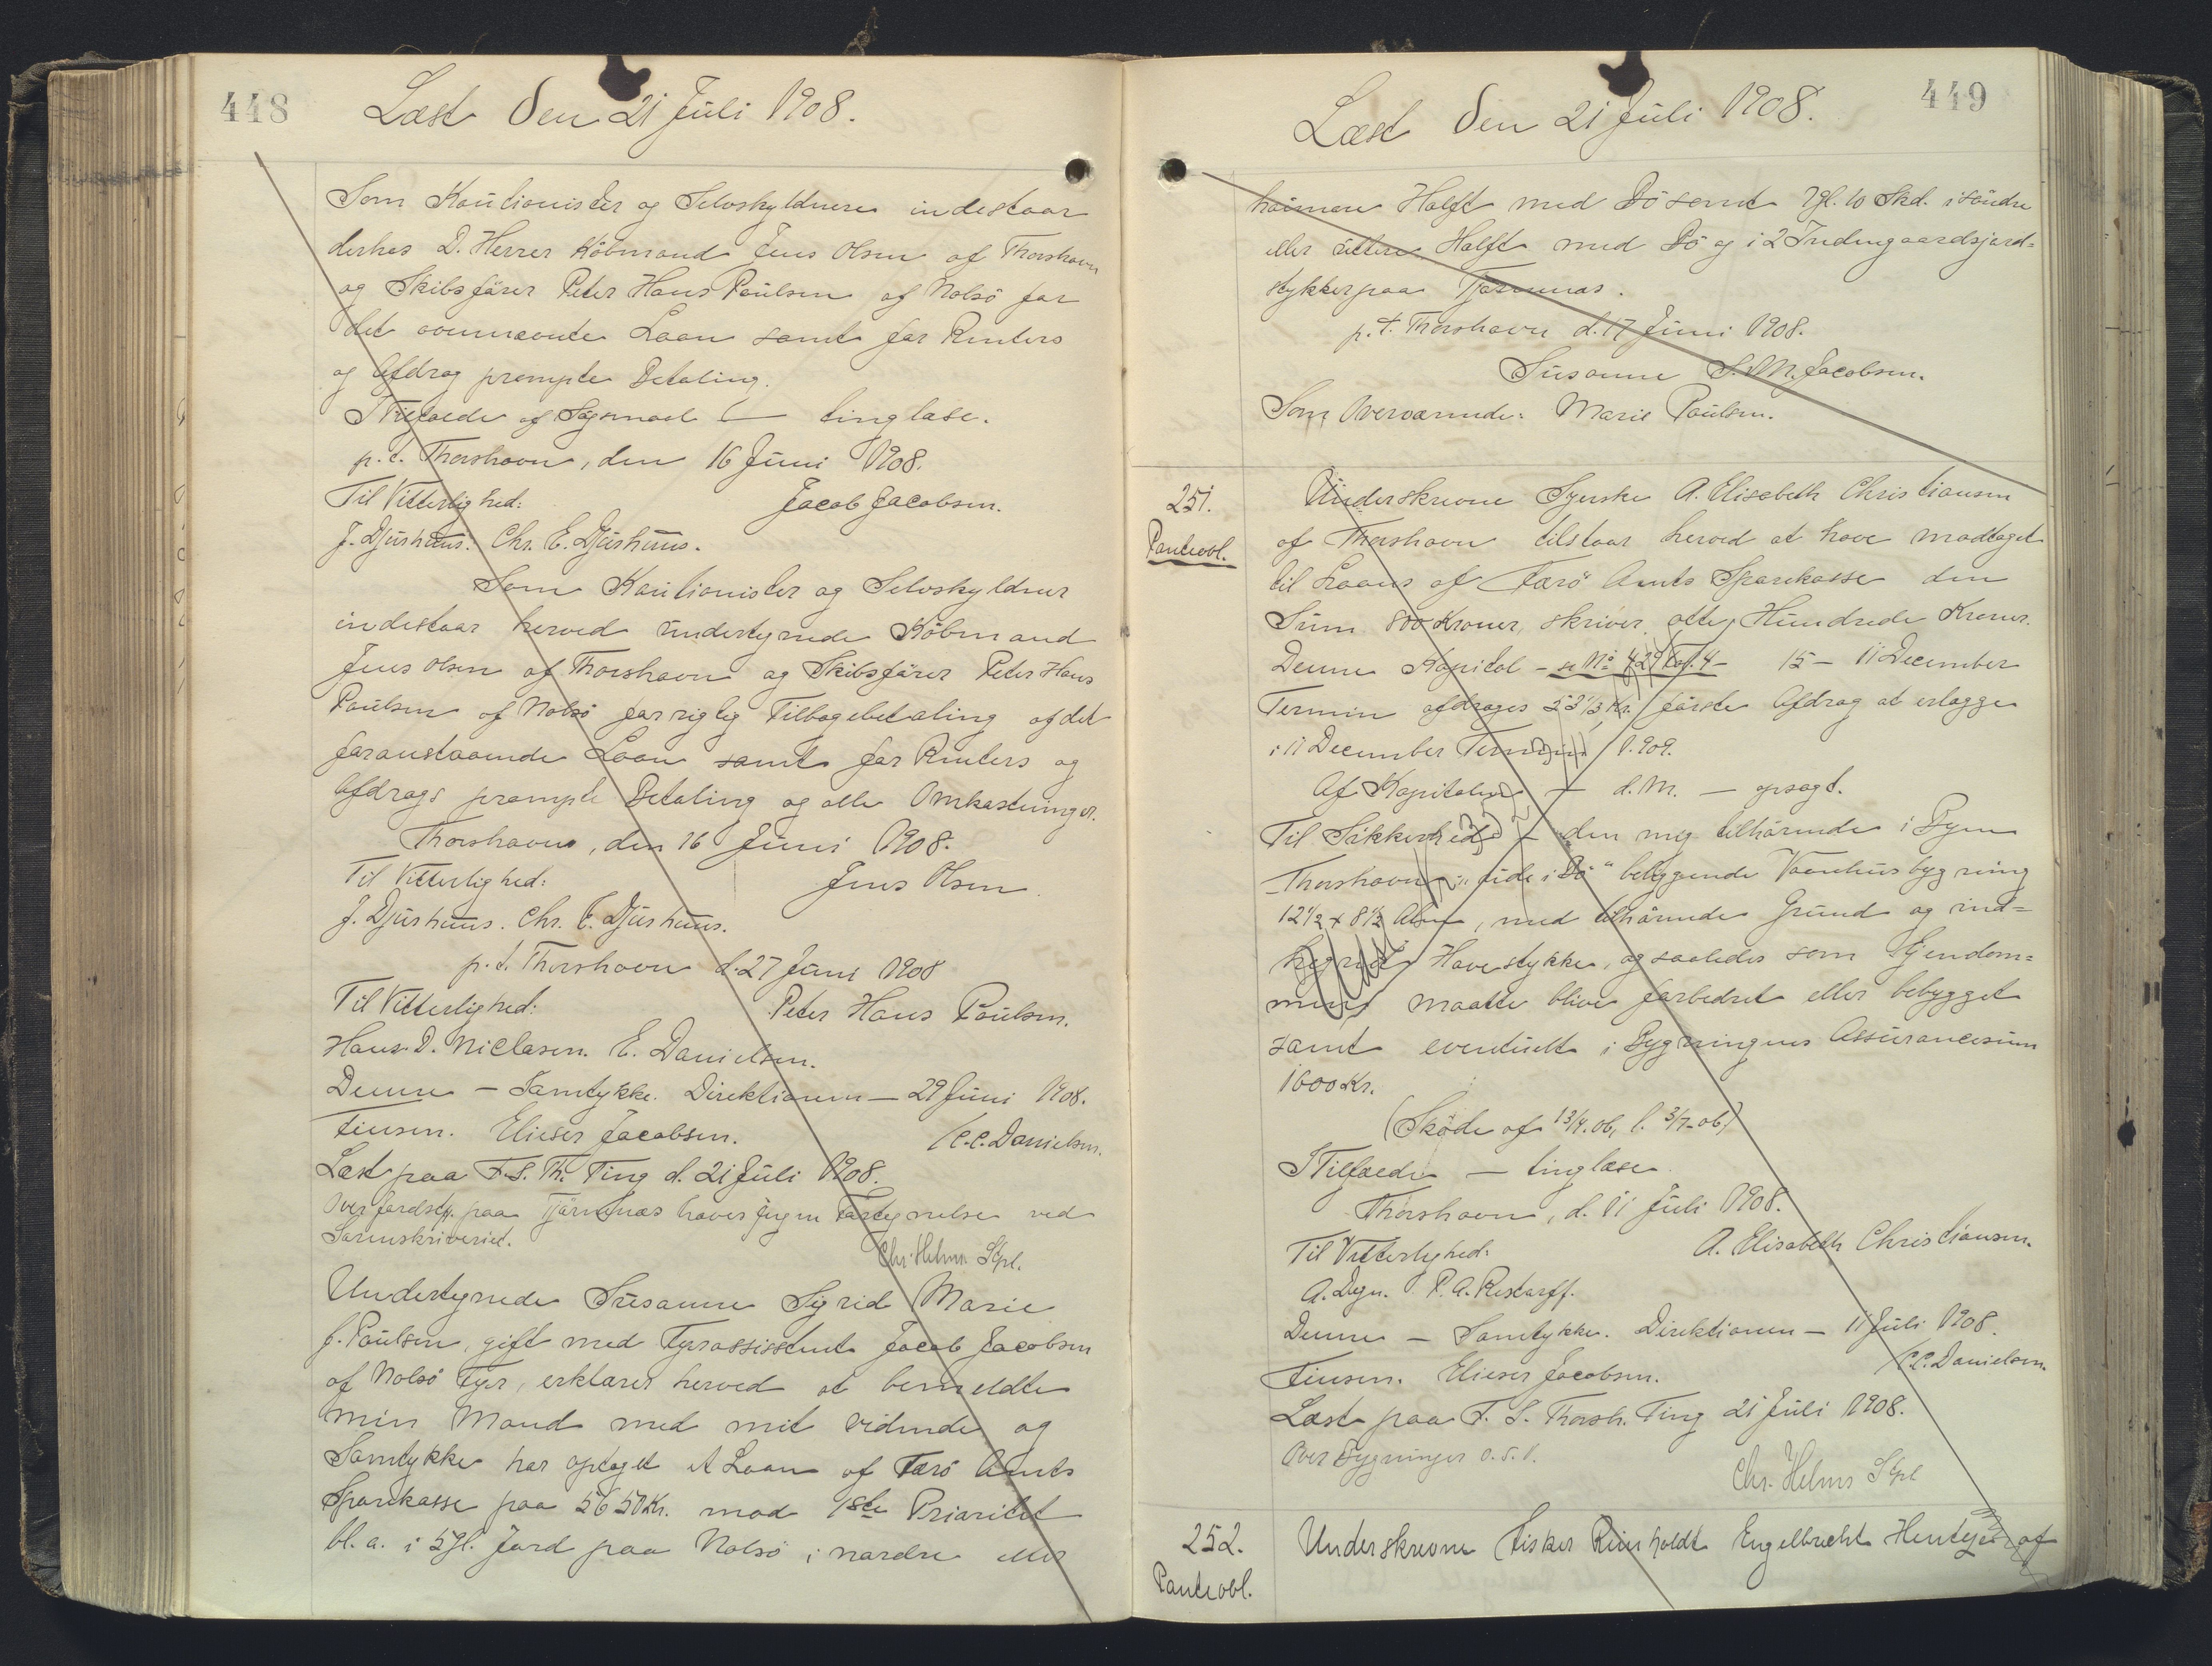 448
Læst den 21 Juli 1908.
Som Kautionister og Selvskyldnere indestaar
derhos D. Herrer Köbmand Jens Olsen af Thorshavn
og Skibsförer Peter Hans Poulsen af Nolsö for
det ovennævnte Laan samt for Renters
og Afdrag prompte Betaling.
I Tilfælde af Sögsmaal — tinglæse.
p. t. Thorshavn, den 16 Juni 1908.
Til Vitterlighed: Jacob Jacobsen.
J. Djurhuus. Chr. E. Djurhuus.
Som Kautionister og Selvskyldner
indestaar herved undertegnede Köbmand
Jens Olsen af Thorshavn og Skibsförer Peter Hans
Poulsen af Nolsö for rigtig Tilbagebetaling af det
foranstaaende Laan samt for Renters og
Afdrags prompte Betaling og alle Omkostninger.
Thorshavn, den 16 Juni 1908.
Til Vitterlighed: Jens Olsen.
J. Djurhuus. Chr. E. Djurhuus.
p. t. Thorshavn d. 27 Juni 1908
Til Vitterlighed: Peter Hans Poulsen.
Hans D. Niclasen. E. Danielsen.
Denne — Samtykke. Direktionen — 29 Juni 1908.
Finsen. Elieser Jacobsen. /C.C. Danielsen.
Læst paa F. S. Th. Ting d. 21 Juli 1908.
Over Jordst. paa Tjörnnæs haves ingen Fortegnelse ved
Sorenskriveriet. Chr. Helms Stpl.
Undertegnede Susanne Sigrid Marie
f. Poulsen, gift med Fyrassistent Jacob Jacobsen
af Nolsö Fyr, erklærer herved at bemeldte
min Mand med mit Vidende og
Samtykke har optaget et Laan af Færö Amts
Sparekasse paa 5650 Kr. mod 1ste Prioritet
bl. a. i 5 Gl. Jord paa Nolsö i nordre eller
449
Læst den 21 Juli 1908.
heimere Halft med Bö samt 7 Gl. 10 Skd. i söndre
eller üttere Halft med Bö og i 2 Indengaardsjord=
stykker paa Tjörnnæs.
p. t. Thorshavn d. 17 Juni 1908.
Susanne S. M. Jacobsen.
Som Overværende: Marie Poulsen.
251.
Panteobl.
Underskrevne Syerske A. Elisabeth Christiansen
af Thorshavn tilstaar herved at have modtaget
til Laans af Færö Amts Sparekasse den
Sum 800 Kroner, skriver otte Hundrede Kroner.
Denne Kapital — se No 429 Fol. 4 — 15 — 11 December
Termin afdrages 53 1/3 Kr. förste Afdrag at erlægge
i 11 December Termin 1909.
Af Kapitalen — d. M. — opsagt.
Til Sikkerhed — den mig tilhörende i Byen
Thorshavn „ude i Bö" beliggende Vaanhusbygning
12 1/2 x 8 1/2 Alen, med tilhörende Grund og ind=
hegnet Havestykke, og saaledes som Ejendom=
men maatte blive forbedret eller bebygget
samt eventuelt i Bygningens Assurancesum
1600 Kr.
(Sköde af 13/4.06, l. 3/7.06)
I Tilfælde — tinglæse.
Thorshavn, d. 11 Juli 1908.
Til Vitterlighed: A. Elisabeth Christiansen.
A. Degn. P. A. Restorff.
Denne — Samtykke. Direktionen — 11 Juli 1908.
Finsen. Elieser Jacobsen. /C.C. Danielsen.
Læst paa F. S. Thorsh. Ting 21 Juli 1908.
Over Bygninger o. s. v.
Chr. Helms Stpl
252.
Panteobl.
Underskrevne Fisker Reinholdt Engelbrecht af